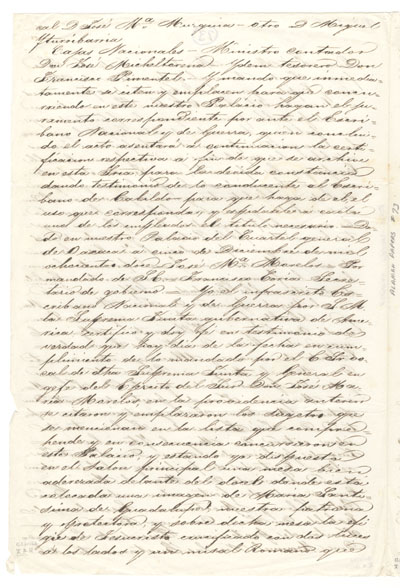 cal D. José Ma. Murguia - Otro D. Miguel
Yturribarria
Cajas Nacionales - Ministro contador
Don José Micheltorena - Ydem tesorero Don
Francisco Pimentel - Y mando que inmedia-
tamente se citen y emplacen para que concu-
rriendo en este nuestro Palacio hagan el ju-
ramento correspondiente por ante el Escri-
bano Nacional y de Guerra, quien conclui-
do el acto asentará á continuacion la certi-
ficacion respectiva a fin de que se archive
en esta para la debida constancia
dando testimonio de lo conducente al Escri-
bano de Cabildo para que haga de el el
uso que corresponda, y espidale á cada
uno de los empleados el titulo necesario - Da-
do en nuestro Palacio del Cuartel general
de Oaxaca á once de Diciembre de mil
ochocientos doce - José Ma. Morelos - Por
mandado de S. E. - Secre-
tario de gobierno - Yo el infrascrito Es-
cribano Nacional y de Guerra por S. M.
la Suprema Junta gubernativa de Ame-
rica certifico y doy fé en testimonio de
verdad que hoy dia de la fecha en cum-
plimiento de lo mandado por el E. S. Vo-
cal de dha Suprema Junta y General en
gefe del Egército del Sur Don José Ma-
ria Morelos, en la providencia anterior
se citaron y emplazaron los sugetos que
se mencionan en la lista que compre-
hende y en consecuencia concurrieron en
este Palacio, y estando ya dispuesta
en el salon principal una mesa bien
aderezada delante del docel donde está
colocada una imagen de Maria Santi-
sima de Guadalupe, nuestra patrona
y protectora y sobre dicha mesa la efi-
gie de Jesucristo crucificado con dos luces
á los lados y un misal Romano y que